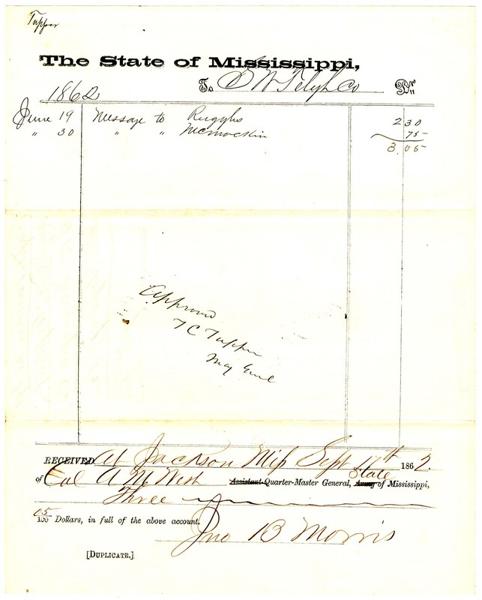 Tupper
The State of Mississippi,
To S W Telgh Co Dr
1862
June 19 Message to Ruggles 2 30
" 30 " " 75
3.05
Approved
T C Tupper
Maj Genl
RECEIVED at Jackson Miss Sept 17th 1862
of Col A M West Assistant Quarter-Master General, State Army of Mississippi,
Three
05/100 Dollars, in full of the above account.
Jno B Morris
[DUPLICATE.]